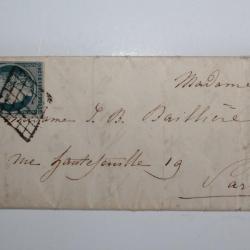 Madame
Madame J. B. Baillière
rue hautefeuille 19
Par